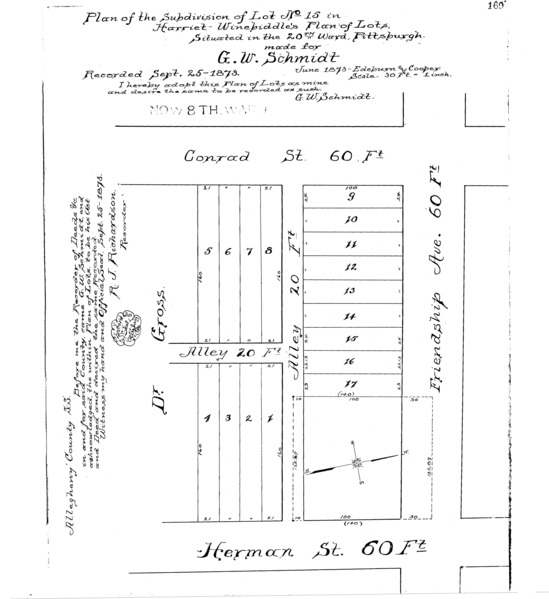 160
Plan of the Subdivision of Lot No 15 in
Harriet Winebiddle's Plan of Lots,
Situated in the 20TH Ward, Pittsburgh.
made for
G. W. Schmidt
June 1873 - Edeburn & Cooper
Recorded Sept. 25-1873.
Scale - 30 Ft - 1 inch.
I hereby adopt this Plan of Lots as mine
and desire the same to be recorded as such.
G. W. Schmidt.
NOW 8TH WARD
Conrad St. 60 Ft
21 21
5 6 7 8
160 160
21 21
Alley 20 Ft
4 3 2 1
160 160
21 21
Dr. Gross.
Alley 20 Ft
100
9
10
11
12
13
14
15
16
17
(100)
Friendship Ave. 60 Ft
30
N
S
100
(100)
30
Herman St. 60 Ft
Allegheny County SS.
Before me the Recorder of Deeds &c
in and for said County came G. W. Schmidt and
acknowledged the within Plan of Lots to be his act
and Deed and desired the same Recorded
Witness my hand and Official Seal, Sept. 25-1873.
R. J. Richardson.
Recorder